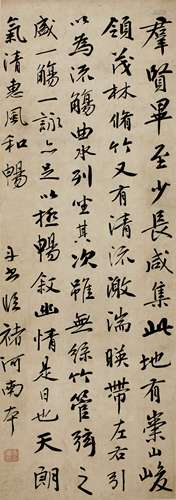 羣賢畢至少長咸集此地有崇山峻
領茂林脩竹又有清流激湍暎帶左右引
以為流觴曲水列坐其次雖無絲竹管弦之
盛一觴一詠亦足以極暢敘幽情是日也天朗
氣清惠風和暢
臨褚河南本